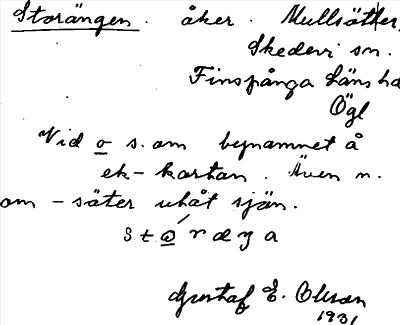 Storängen. åker. Mullsätter,
Skedevi sn.
Finspånga läns hd
Ögl
Vid o s. om bynamnet å
ek-kartan. Även n.
om -säter utåt sjön.
Gustaf E. Olsson
1931